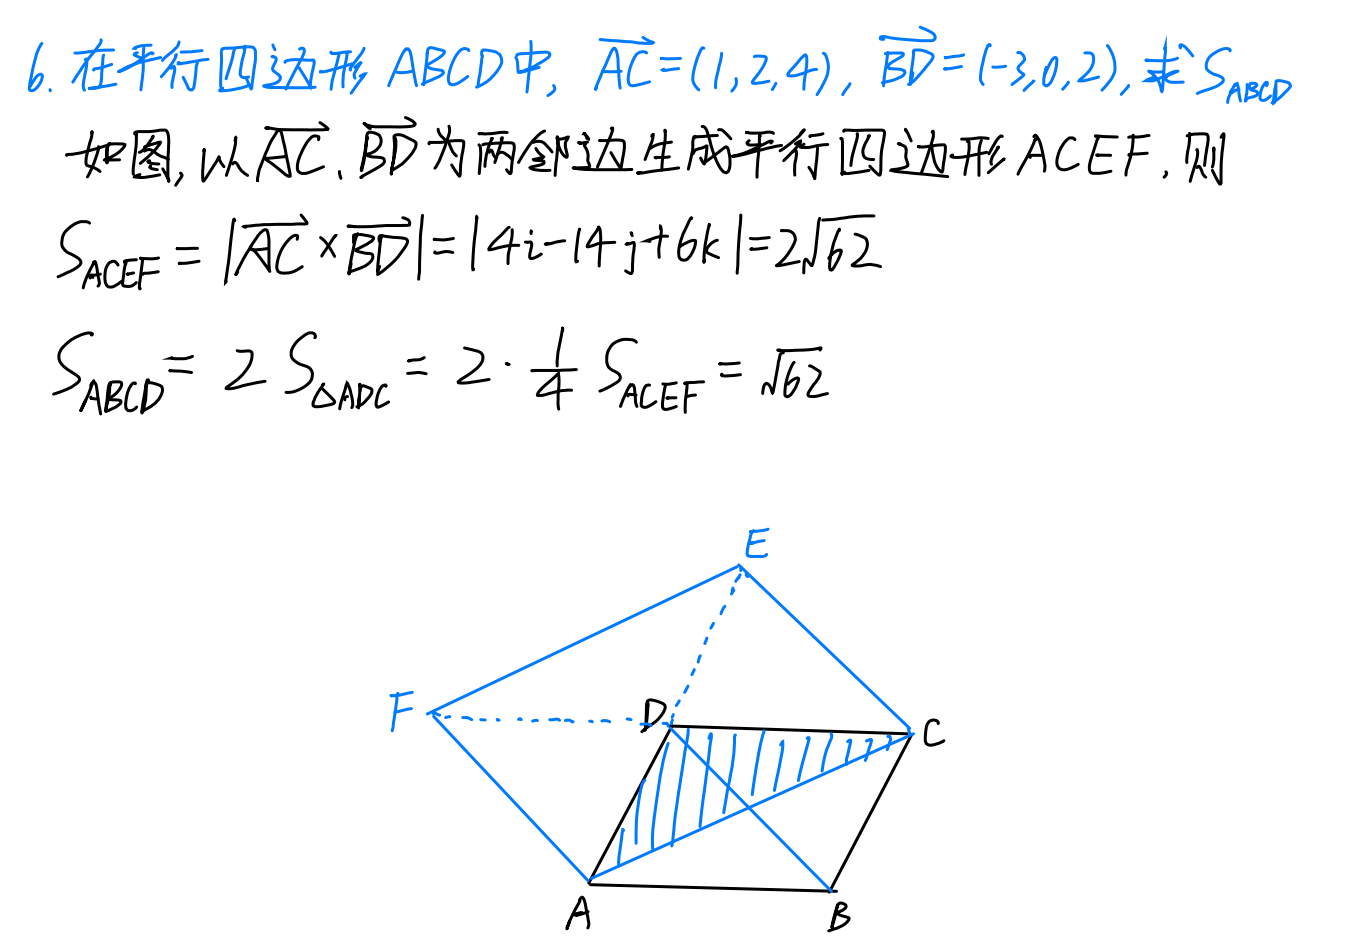 6. 在平行四边形ABCD中, $\overrightarrow{AC}=(1,2,4)$, $\overrightarrow{BD}=(-3,0,2)$, 求 $S_{ABCD}$
如图, 以 $\overrightarrow{AC}$、$\overrightarrow{BD}$ 为两邻边生成平行四边形ACEF, 则
$S_{ACEF}=|\overrightarrow{AC}\times\overrightarrow{BD}|=|4i-14j+6k|=2\sqrt{62}$
$S_{ABCD}=2S_{\triangle ADC}=2\cdot\frac{1}{4}S_{ACEF}=\sqrt{62}$
E
F
D
C
A
B